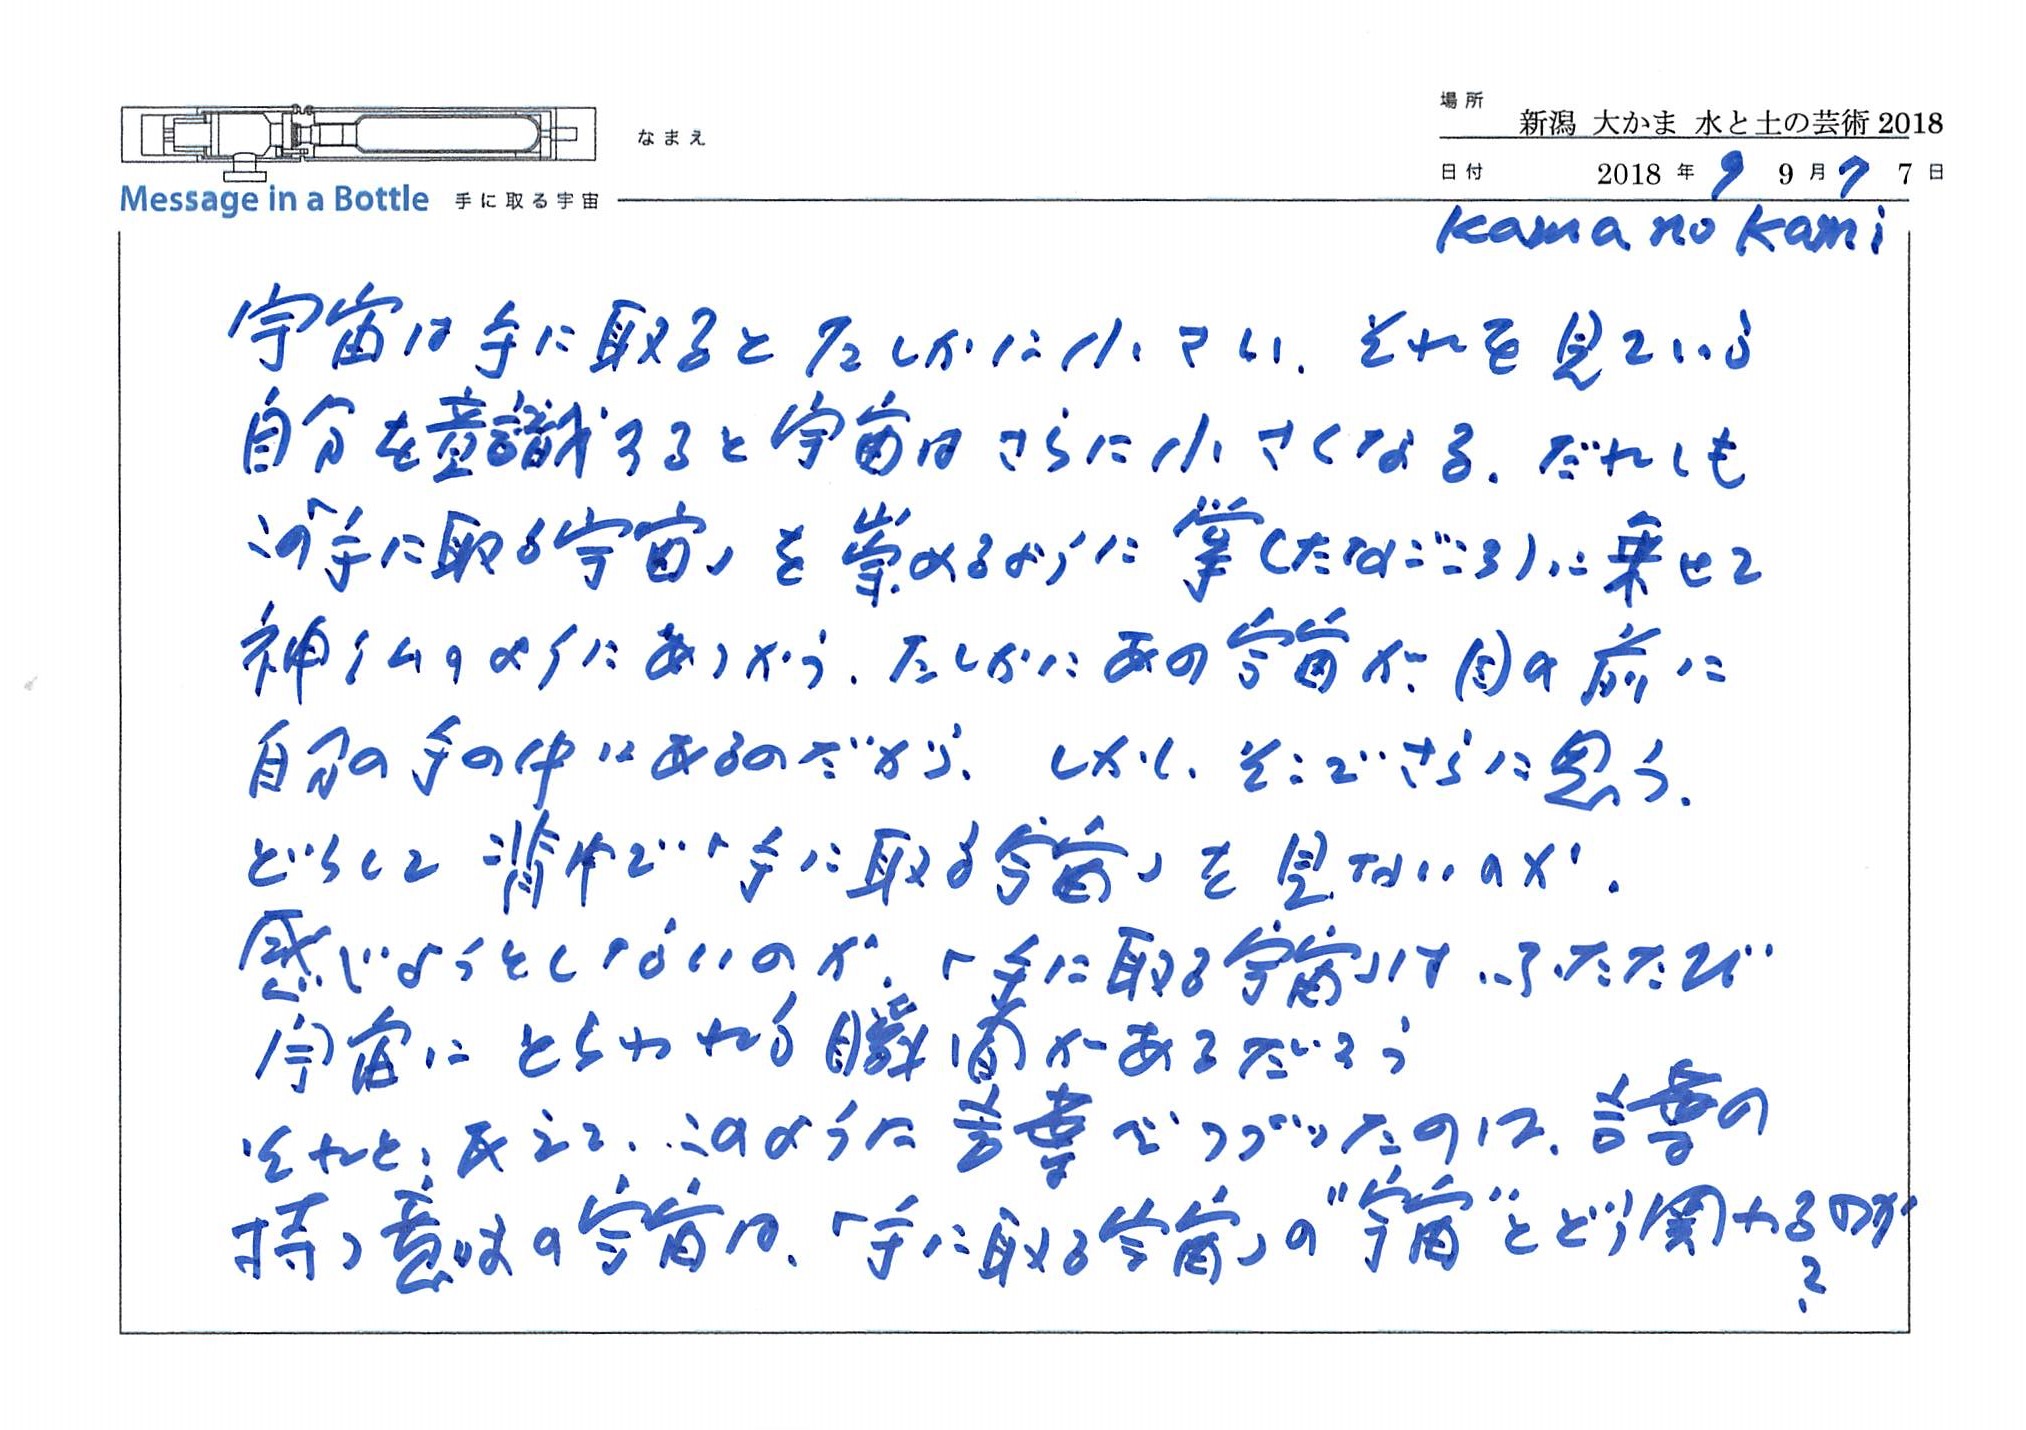 場所 新潟 大かま 水と土の芸術 2018
なまえ
日付 2018 年 9 9 月 7 7 日
Message in a Bottle 手に取る宇宙
kama no kami
宇宙は手に取るとたしかに小さい. それを見ている
自分を意識すると宇宙はさらに小さくなる. だれしも
この「手に取る宇宙」を崇めるように掌(たなごころ)に乗せて
神仏のようにあつかう. たしかにあの宇宙が目の前に
自分の手の中にあるのだから. しかし、そこでさらに思う.
どうして背中で「手に取る宇宙」を見ないのか.
感じようとしないのか. 「手に取る宇宙」は、ふたたび
宇宙にとらわれる瞬間があるだろう
それと、あえて、このように言葉でつづったのは、言葉の
持つ意味の宇宙は、「手に取る宇宙」の"宇宙"とどう関わるのか
?